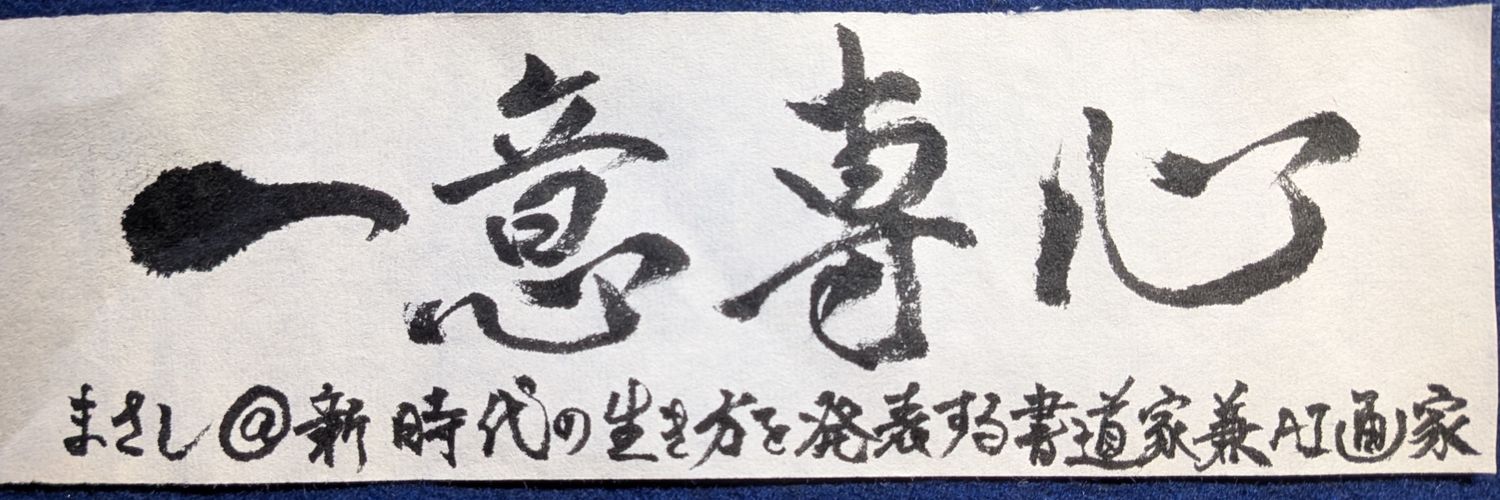 一意専心
まさし@新時代の生き方を発表する書道家兼AI通家